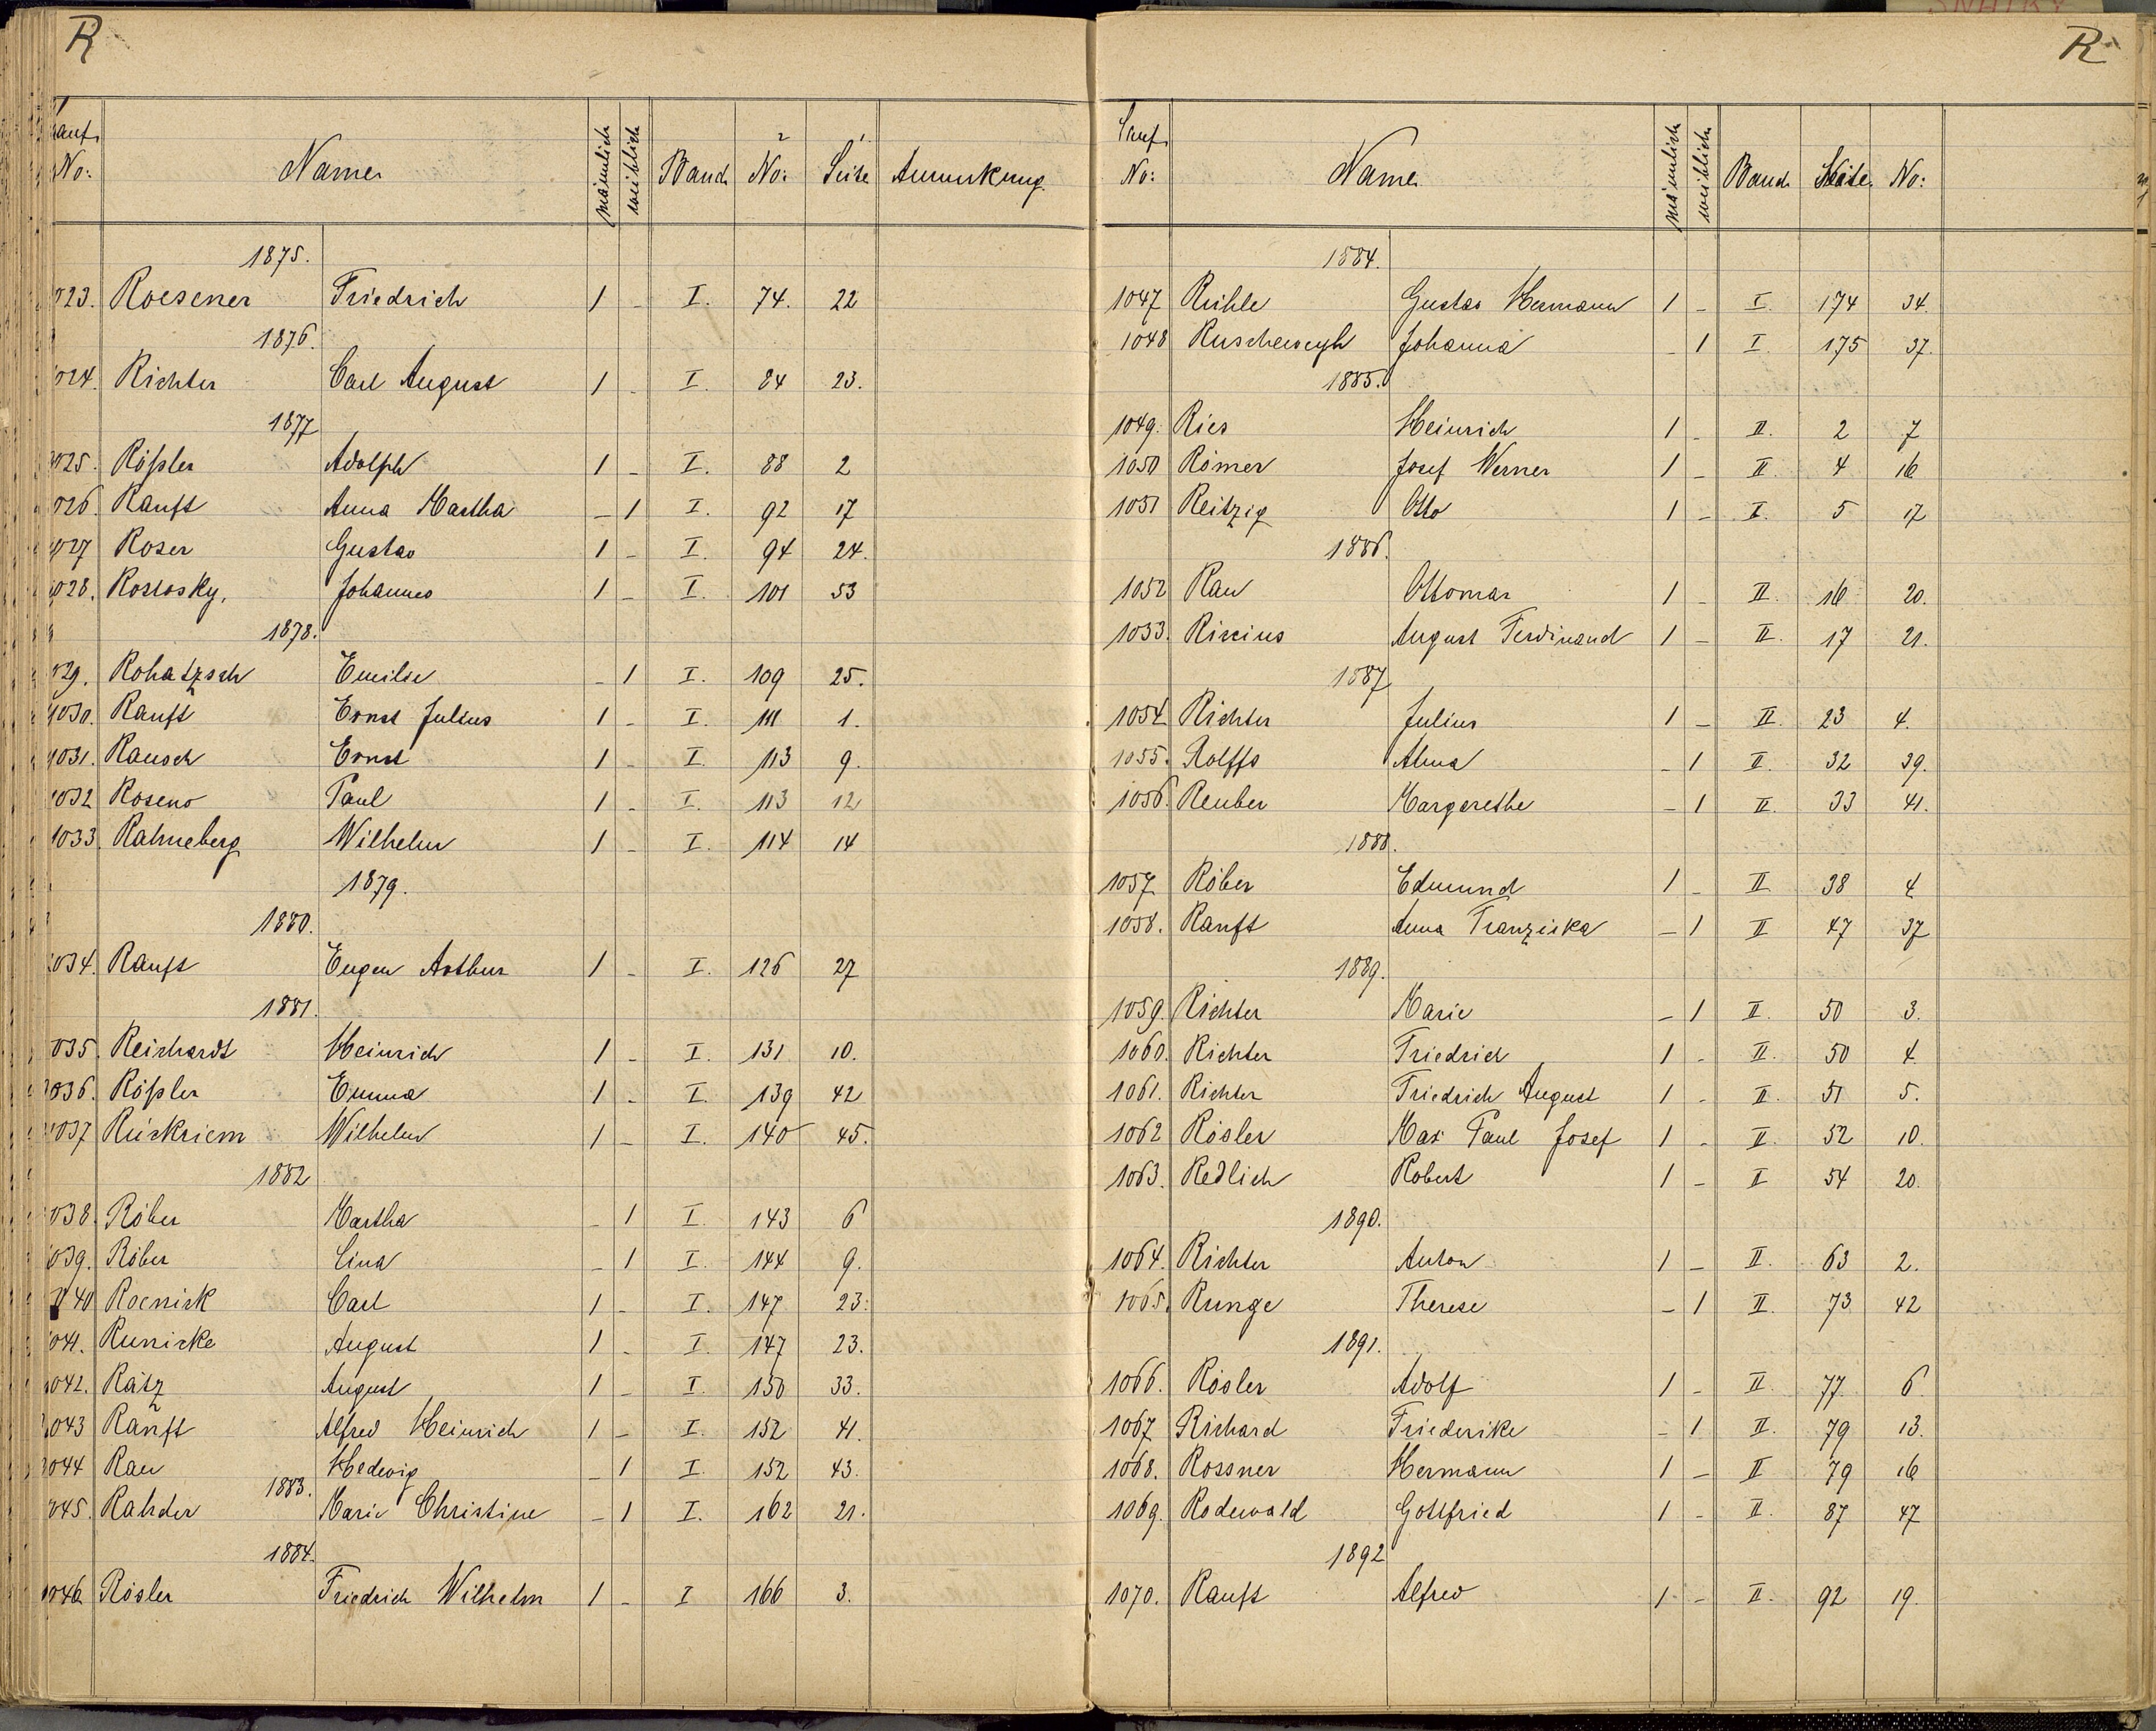 R
Lauf. No: Name männlich weiblich Band No: Seite Anmerkung
1875.
1023. Roesener Friedrich 1 - I. 74. 22
1876.
1024. Richter Carl August 1 - I. 84 23.
1877
1025. Rößler Adolph 1 - I. 88 2
1026. Ranft Anna Martha - 1 I. 92 17
1027 Roser Gustav 1 - I. 94 24.
1028. Rostosky, Johannes 1 - I. 101 53
1878.
1029. Rohatzsch Emilie - 1 I. 109 25.
1030. Ranft Ernst Julius 1 - I. 111 1.
1031. Rausch Ernst 1 - I. 113 9.
1032 Roseno Paul 1 - I. 113 12
1033. Rahneberg Wilhelm 1 - I. 114 14
1879.
1880.
1034. Ranft Eugen Arthur 1 - I. 126 27
1881.
1035. Reichardt Heinrich 1 - I. 131 10.
1036. Rößler Emma 1 - I. 139 42
1037 Rückriem Wilhelm 1 - I. 140 45.
1882
1038. Röber Martha - 1 I. 143 6
1039. Röber Lina - 1 I. 144 9.
1040 Roenick Carl 1 - I. 147 23.
1041. Runicke August 1 - I. 147 23.
1042. Rätz August 1 - I. 150 33.
1043 Ranft Alfred Heinrich 1 - I. 152 41.
1044 Rau Hedwig - 1 I. 152 43.
1883.
1045. Rahder Marie Christine - 1 I. 162 21.
1884.
1046 Rösler Friedrich Wilhelm 1 - I 166 3.
R
Lauf. No: Name männlich weiblich Band Seite No:
1884.
1047 Rühle Gustav Hermann 1 - I. 174 34.
1048 Ruscheweyh Johanna - 1 I. 175 37.
1885.
1049. Ries Heinrich 1 - II. 2 7
1050 Römer Josef Werner 1 - II 4 16
1051 Reitzig Otto 1 - II. 5 17
1886.
1052 Rau Ottomar 1 - II. 16 20.
1053. Ricius August Ferdinand 1 - II. 17 21.
1887
1054 Richter Julius 1 - II. 23 4.
1055. Rolffs Alma - 1 II. 32 39.
1056. Reuber Margarethe - 1 II. 33 41.
1888.
1057 Röber Edmund 1 - II 38 4
1058. Ranft Anna Franziska - 1 II 47 37
1889.
1059. Richter Marie - 1 II. 50 3.
1060. Richter Friedrich 1 - II. 50 4.
1061. Richter Friedrich August 1 - II. 51 5.
1062 Rösler Max Paul Josef 1 - II. 52 10.
1063. Redlich Robert 1 - II 54 20.
1890.
1064. Richter Anton 1 - II. 63 2.
1065. Runge Therese - 1 II. 73 42
1891.
1066. Rösler Adolf 1 - II. 77 6.
1067 Richard Friederike - 1 II. 79 13.
1068. Rossner Hermann 1 - II 79 16
1069. Rodewald Gottfried 1 - II. 87 47
1892
1070. Ranft Alfred 1 - II. 92 19.